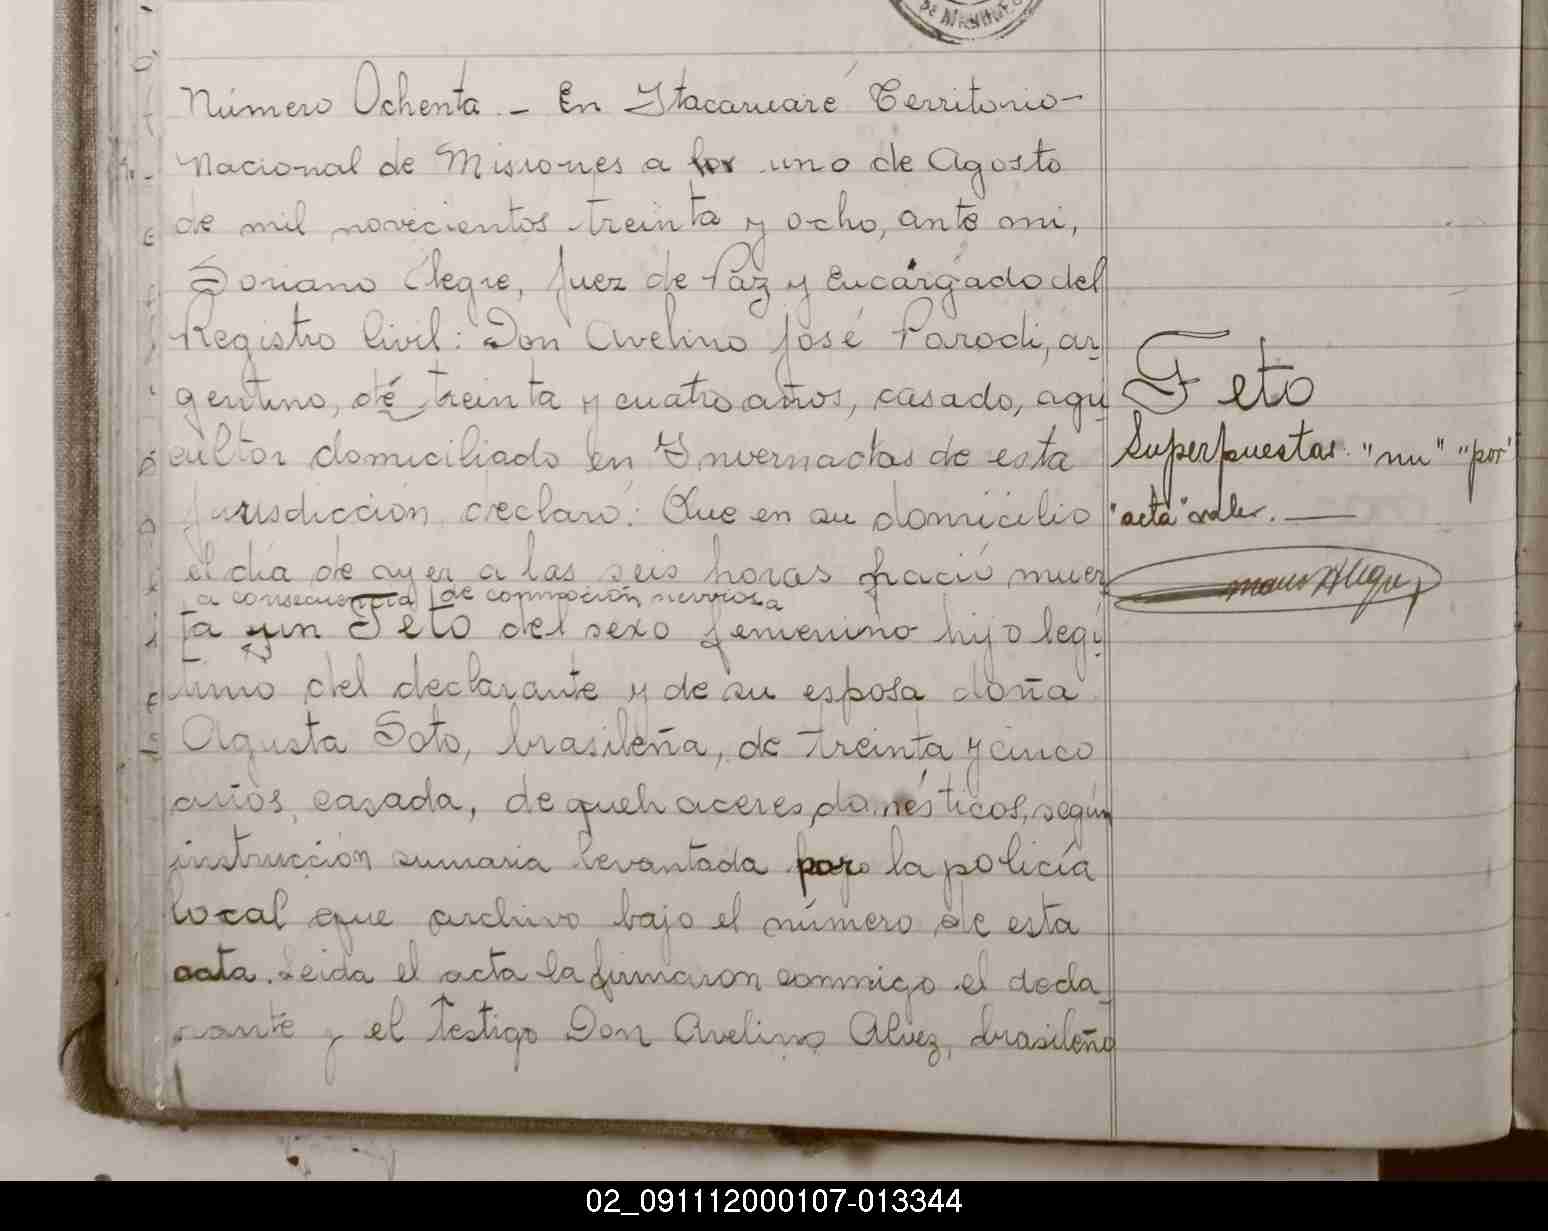 Número Ochenta - En Itacaruaré Territorio-
Nacional de Misiones a los uno de Agosto
de mil novecientos treinta y ocho, ante mi,
Soriano Alegre, Juez de Paz y Encargado del
Registro Civil: Don Avelino José Parodi, ar-
gentino, de treinta y cuatro años, casado, agri
cultor domiciliado en Invernadas de esta
jurisdicción declaró: Que en su domicilio
el dia de ayer a las seis horas nació muer
a consecuencia de conmoción nerviosa
ta un Feto del sexo femenino hijo legí
timo del declarante y de su esposa doña
Agusta Soto, brasileña, de treinta y cinco
años, casada, de quehaceres domésticos, según
instrucción sumaria levantada por la policía
local que archivo bajo el número de esta
acta. Leida el acta la firmaron conmigo el decla-
rante y el testigo Don Avelino Alvez, brasileño
Feto
Superpuestas "nu" "por"
"acta" vale. —
02_091112000107-013344